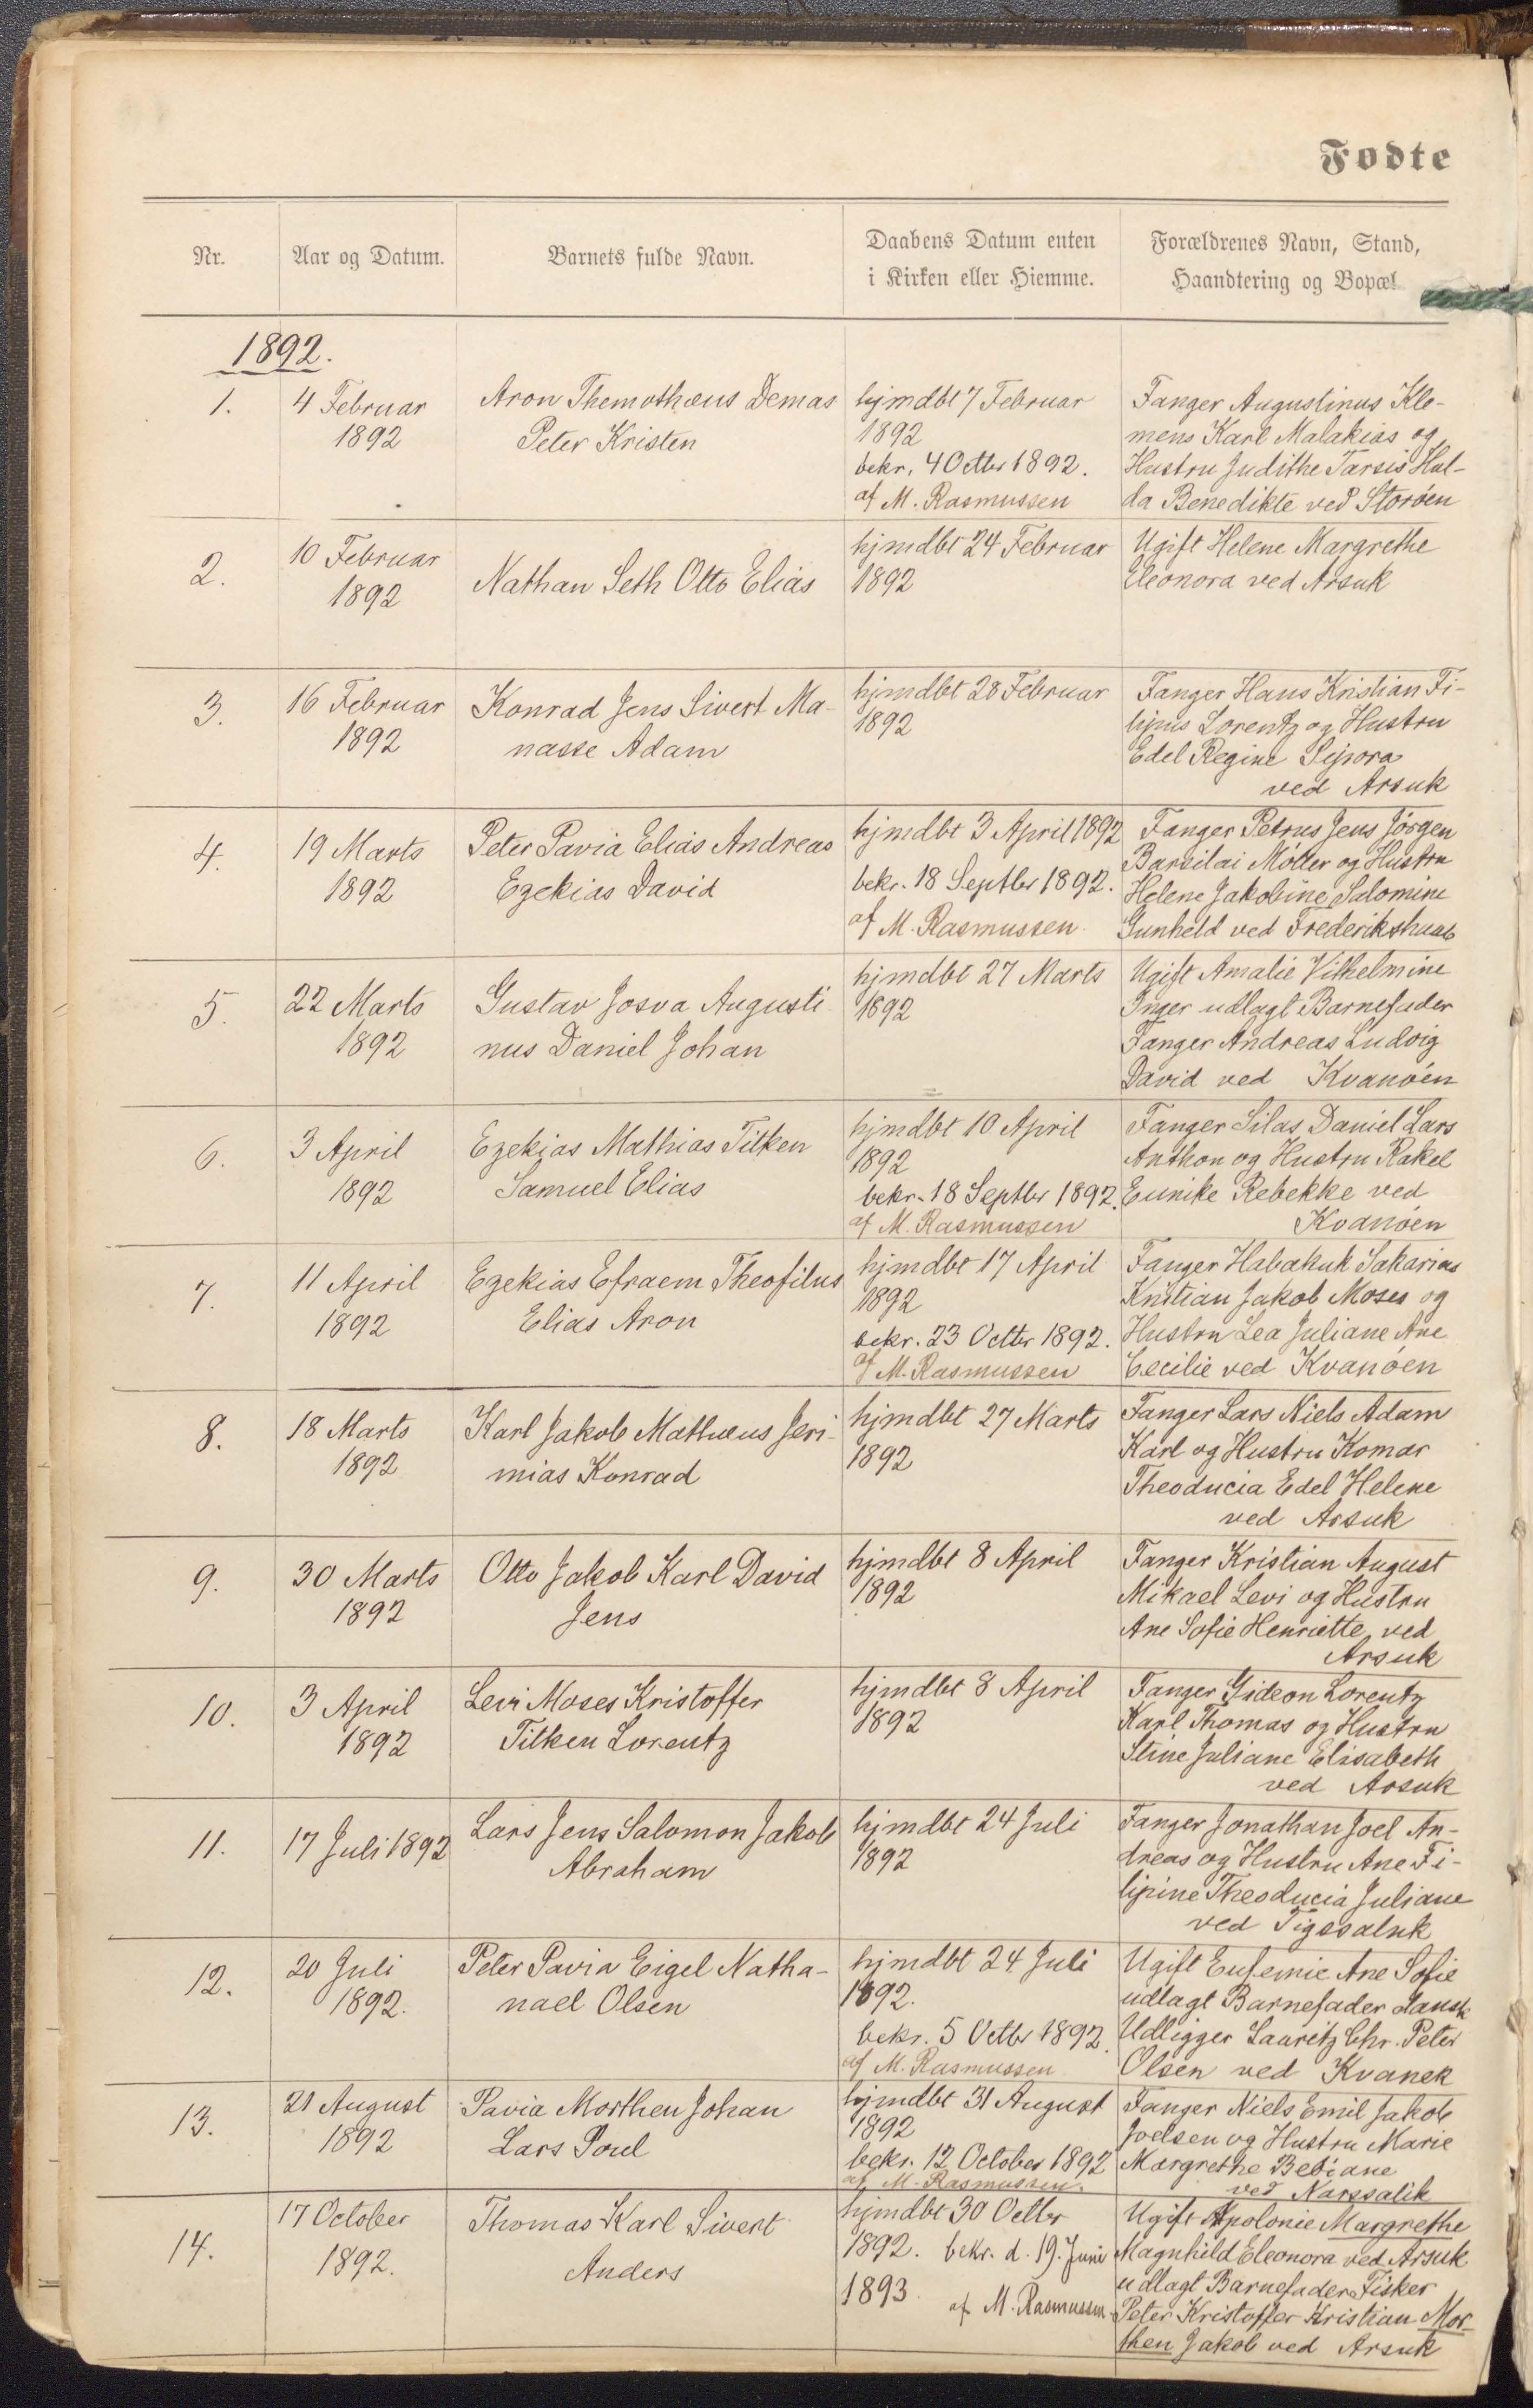 Fødte
Nr.
Aar og Datum.
Barnets fulde Navn.
Daabens Datum enten
i Kirken eller Hiemme.
Forældrenes Navn, Stand,
Haandtering og Bopæl
1892.
1.
4 Februar
1892
Aron Themothæus Demas
Peter Kristen
hjmdbt 7 Februar
1892
bekr. 4 Octbr 1892.
af M. Rasmussen
Fanger Augustinus Kle-
mens Karl Malakias og
Hustru Judithe Tarsis Hul-
da Benedikte ved Storöen
2.
10 Februar
1892
Nathan Seth Otto Elias
hjmdbt 24 Februar
1892
Ugift Helene Margrethe
Eleonora ved Arsuk
3.
16 Februar
1892
Konrad Jens Sivert Ma-
nasse Adam
hjmdbt 28 Februar
1892
Fanger Hans Kristian Fi-
lipus Lorentz og Hustru
Edel Regine Sepora
ved Arsuk
4.
19 Marts
1892
Peter Pavia Elias Andreas
Ezekias David
hjmdbt 3 April 1892
bekr. 18 Septbr 1892.
af M. Rasmussen
Fanger Petrus Jens Jörgen
Barsilai Möller og Hustru
Helene Jakobine Salomine
Gunheld ved Frederikshaab
5.
22 Marts
1892
Gustav Josva Augusti-
nus Daniel Johan
hjmdbt 27 Marts
1892
Ugift Amalie Vilhelmine
Inger udlagt Barnefader
Fanger Andreas Ludvig
David ved Kvanöen
6.
3 April
1892
Ezekias Mathias Titken
Samuel Elias
hjmdbt 10 April
1892
bekr. 18 Septbr 1892.
af M. Rasmussen
Fanger Silas Daniel Lars
Anthon og Hustru Rakel
Eunike Rebekke ved
Kvanöen
7.
11 April
1892
Ezekias Efraem Theofilus
Elias Aron
hjmdbt 17 April
1892
bekr. 23 Octbr 1892.
af M. Rasmussen
Fanger Habakuk Sakarias
Kristian Jakob Moses og
Hustru Lea Juliane Ane
Cecilie ved Kvanöen
8.
18 Marts
1892
Karl Jakob Mathæus Jeri-
mias Konrad
hjmdbt 27 Marts
1892
Fanger Lars Niels Adam
Karl og Hustru Komar
Theoducia Edel Helene
ved Arsuk
9.
30 Marts
1892
Otto Jakob Karl David
Jens
hjmdbt 8 April
1892
Fanger Kristian August
Mikael Levi og Hustru
Ane Sofie Henriette ved
Arsuk
10.
3 April
1892
Levi Moses Kristoffer
Titken Lorentz
hjmdbt 8 April
1892
Fanger Gideon Lorentz
Karl Thomas og Hustru
Stine Juliane Elisabeth
ved Arsuk
11.
17 Juli 1892
Lars Jens Salomon Jakob
Abraham
hjmdbt 24 Juli
1892
Fanger Jonathan Joel An-
dreas og Hustru Ane Fi-
lipine Theoducia Juliane
ved Tigssaluk
12.
20 Juli
1892.
Peter Pavia Eigel Natha-
nael Olsen
hjmdbt 24 Juli
1892.
bekr. 5 Octbr 1892.
af M. Rasmussen
Ugift Eufemie Ane Sofie
udlagt Barnefader dansk
Udligger Lauritz Chr. Peter
Olsen ved Kvanek
13.
21 August
1892
Pavia Morthen Johan
Lars Poul
hjmdbt 31 August
1892
bekr. 12 October 1892
af M. Rasmussen.
Fanger Niels Emil Jakob
Joelsen og Hustru Marie
Margrethe Bebiane
ved Narssalik
14.
17 October
1892.
Thomas Karl Sivert
Anders
hjmdbt 30 Octbr
1892. bekr. d. 19. Juni
1893 af M. Rasmussen.
Ugift Apolonie Margrethe
Magnhild Eleonora ved Arsuk
udlagt Barnefader Fisker
Peter Kristoffer Kristian Mor-
then Jakob ved Arsuk